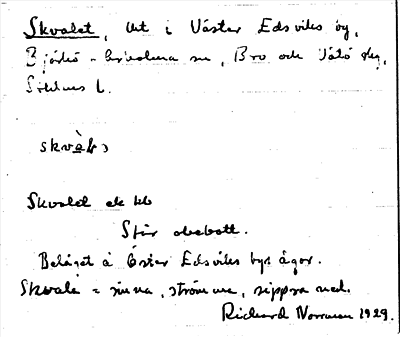 Skvalet, lht i Väster Edsviks by,
Björkö-Arholma sn, Bro och Vätö slg,
Sthlms l.
skvàḷ
Skvalet
Står obebott.
Beläget å Öster Edsviks bys ägor.
Skvala = rinna, strömma, sippra ned.
Richard Norrman 1929.